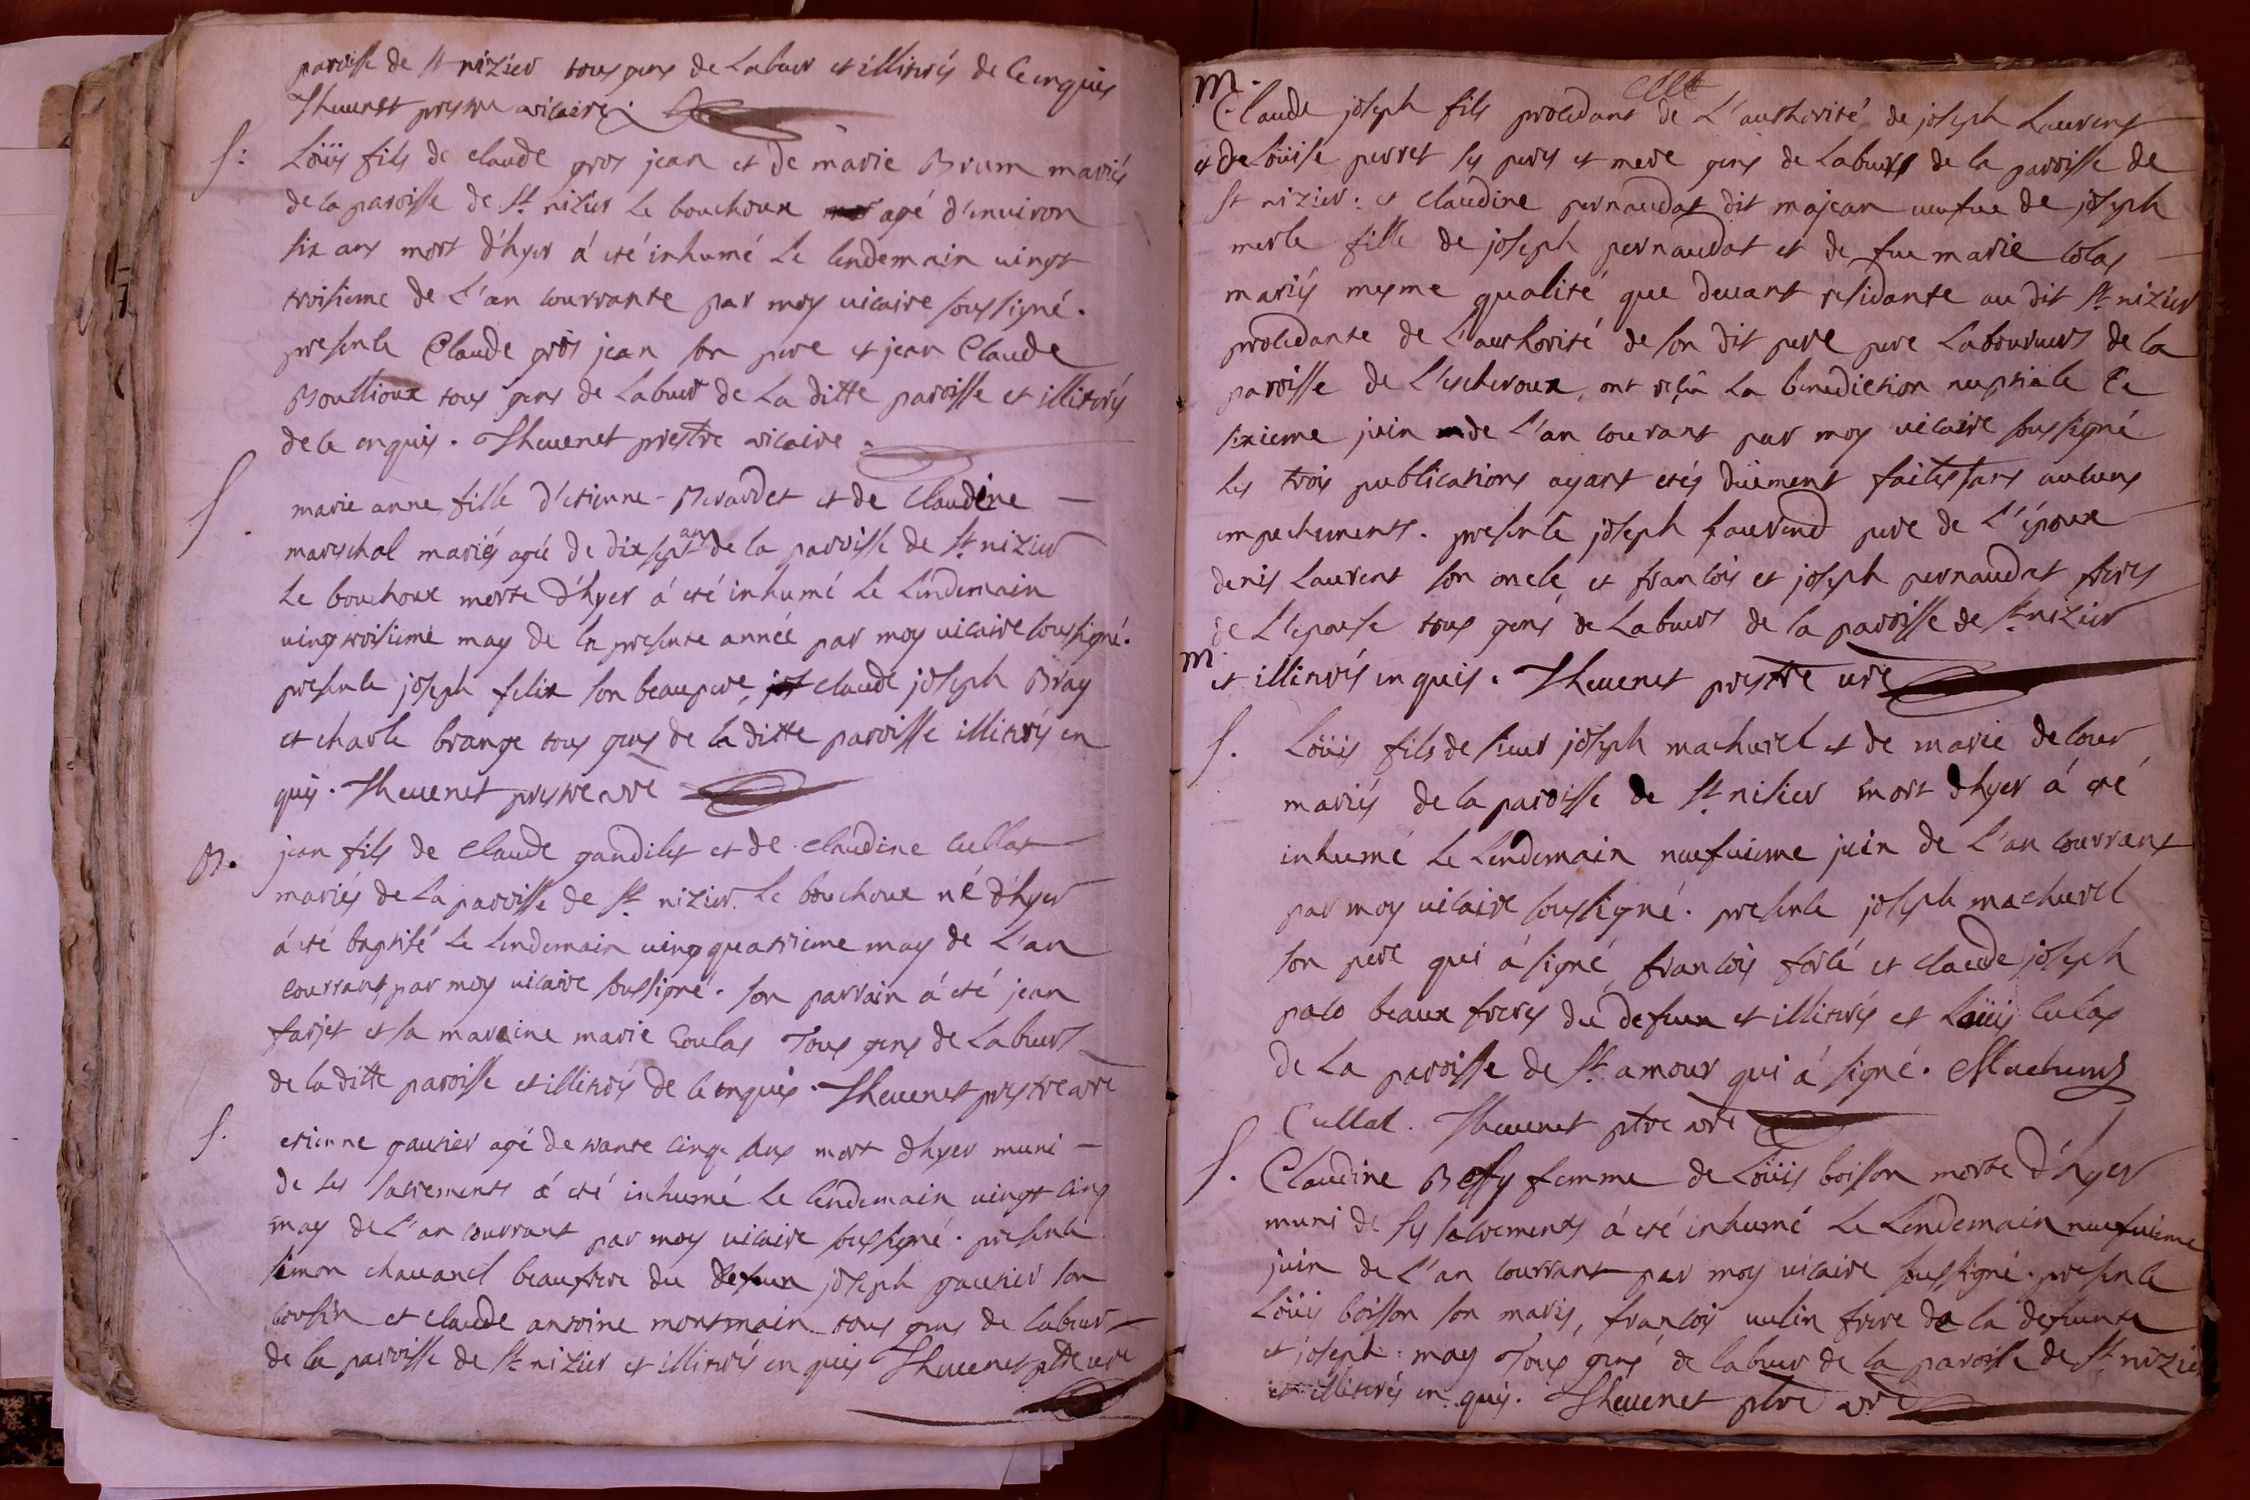 paroisse de st nizier tous gens de Labeur et illitirés de ce enquis
Theuenet prestre vicaire.
S: Loüis fils de claude gros jean et de marie Brum mariés
de la paroisse de St nizier le bouchoux agé d'enuiron
six ans mort d'hyer á eté inhumé Le lendemain uingt
troisieme de L'an courrante par moy uicaire soussigné.
presents Claude gros jean son pere et jean Claude
Boullioux tous gens de Labeur de La ditte paroisse et illitirés
de ce enquis. Theuenet prestre vicaire.
S. marie anne fille d'etienne Berardet et de Claudine
mareschal mariés agée de dix sept ans de la paroisse de St nizier
Le bouchoux morte d'hyer á eté inhumé Le Lendemain
uingtroisieme may de la presente année par moy uicaire soussigné.
presents joseph felix son beaupere, claude joseph Bray
et charle brange tous gens de la ditte paroisse illitirés en
quis. Theuenet prestre vire
B. jean fils de Claude gandilet et de claudine Cullat
mariés de La paroisse de St nizier Le bouchoux né d'hyer
á eté baptisé Le Lendemain uingquatrieme may de L'an
courrant par moy uicaire soussigné. son parrain á eté jean
farjet et sa maraine marie Coulas Tous gens de Labeur
de la ditte paroisse et illitirés de ce enquis. Theuenet prestre vire
S. etienne gautier agé de trante cinq Ans mort d'hyer muni
de ses sacrements á eté inhumé Le Lendemain uingt cinq
may de L'an courrant par moy uicaire soussigné. presents
simon chauanel beaufrere du defun joseph gautier son
cousin et claude antoine montmain tous gens de labeur
de la paroisse de St nizier et illitirés en quis Theuenet ptre vire
m. Claude joseph fils procedant de L'authorité de joseph Laurent
et de Loüise perret ses peres et mere gens de Labeur de la paroisse de
St nizier. et Claudine pernaudat dit majean ueufue de joseph
merle fille de joseph pernaudat et de fue marie Colas
mariés mesme qualité que deuant residante au dit St nizier
procedante de L'authorité de son dit pere pere Laboureur de la
paroisse de L'escheroux, ont reçû La benediction nuptiale Ce
sixieme juin de L'an courant par moy uicaire soussigné
Les trois publications ayant etés düement faites sans aucuns
empechements. presents joseph Laurend pere de L'époux
denis Laurent son oncle et francois et joseph pernaudat freres
de L'epouse tous gens de Labeur de la paroisse de St nizier
m. et illitirés enquis. Theuenet prestre vire
S. Loüis fils de sieur joseph machurel et de marie delour
mariés de la paroisse de St nisier mort d'hyer á eté
inhumé Le Lendemain neufuieme juin de L'an courrant
par moy uicaire soussigné. presents joseph machurel
son pere qui á signé, francois forlé et claude joseph
palo beaux freres du defun et illitirés et Loüis Culas
de La paroisse de St amour qui á signé. Machurel
Cullat. Theuenet ptre vire
S. Claudine Bessy femme de Loüis boisson morte d'hyer
muni de ses sacrements á eté inhumé Le Lendemain neufuieme
juin de L'an courrant par moy uicaire soussigné. presents
Loüis boisson son maris, francois uulin frere de la defunte
et joseph may Tous gens de labeur de la paroisse de St nizier
et illitirés en quis. Theuenet ptre vire